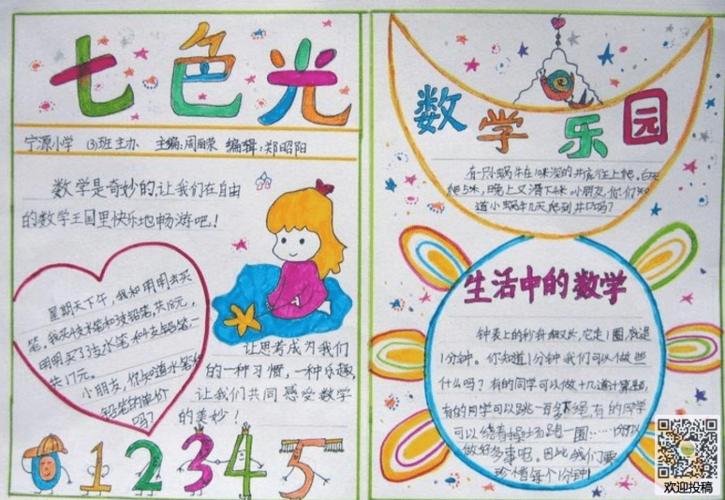 七色光
宁源小学 (3)班 主办 主编:周丽荣 编辑:郑昭阳
数学是奇妙的,让我们在自由
的数学王国里快乐地畅游吧!
星期天下午,我和明明去买
笔。
小朋友,你知道水笔和
铅笔的单价
吗?
让思考成为我们
的一种习惯,一种乐趣,
让我们共同感受数学
的美妙!
0 1 2 3 4 5
数学乐园
有一只蜗牛在10米深的井底往上爬。白天
爬5米,晚上又滑下4米,小朋友,你们知
道小蜗牛几天爬到井口吗?
生活中的数学
钟表上的秒针,它走1圈,就是
1分钟。你知道1分钟我们可以做些
什么吗?有的同学可以做十几道计算题,
有的同学可以跳一百多下绳,有的同学
可以绕着操场跑一圈……1分钟可以
做好多事呢。因此,我们要
珍惜每个1分钟!
欢迎投稿